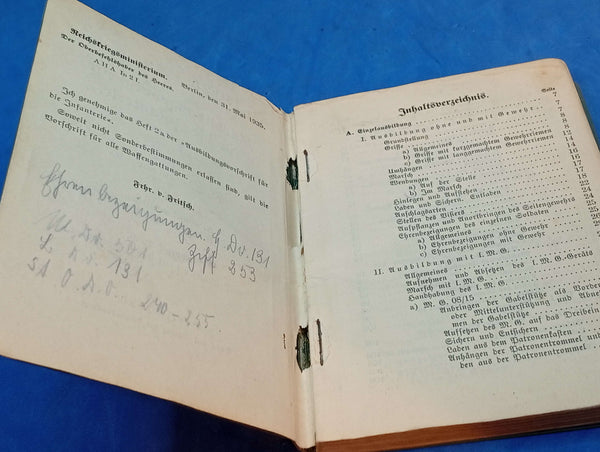 Reichskriegsministerium.
Der Oberbefehlshaber des Heeres.
A H A In 2 I.
Berlin, den 31. Mai 1935.
Ich genehmige das Heft 2a der »Ausbildungsvorschrift für
die Infanterie«.
Soweit nicht Sonderbestimmungen erlassen sind, gilt die
Vorschrift für alle Waffengattungen.
Frhr. v. Fritsch.
Ehrenbezeigungen. H Dv. 131
Ziff 253
131
240-255.
Inhaltsverzeichnis.
Seite
A. Einzelausbildung 7
I. Ausbildung ohne und mit Gewehr 7
Grundstellung
Griffe a) Allgemeines
b) Griffe mit kurzgemachtem Gewehrriemen
c) Griffe mit langgemachtem Gewehrriemen
Umhängen
Marsch
Wendungen
a) Auf der Stelle
b) Im Marsch
Hinlegen und Aufstehen
Laden und Sichern. Entladen
Anschlagarten
Stellen des Visiers
Aufpflanzen und Anortbringen des Seitengewehrs
Ehrenbezeigungen des einzelnen Soldaten
a) Allgemeines
b) Ehrenbezeigungen ohne Gewehr
c) Ehrenbezeigungen mit Gewehr
II. Ausbildung mit l. M. G.
Allgemeines
Aufnehmen und Absetzen des l. M. G.-Geräts
Marsch mit l. M. G.
Handhabung des l. M. G.
a) M. G. 08/15
Anbringen der Gabelstütze als Vorder
oder Mittelunterstützung und Abneh
men der Gabelstütze
Aufsetzen des M. G. auf das Dreibein
Sichern und Entsichern
Laden aus dem Patronenkasten
Anhängen der Patronentrommel und
den aus der Patronentrommel